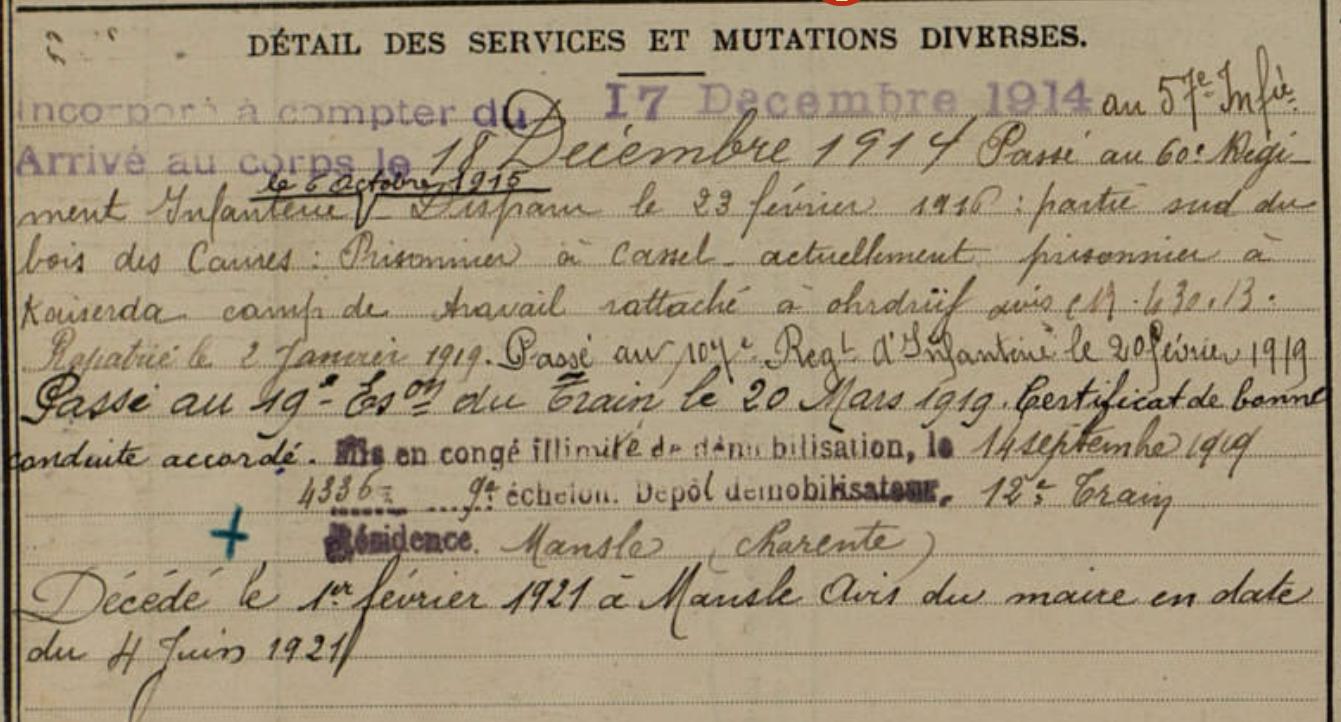 DÉTAIL DES SERVICES ET MUTATIONS DIVERSES.
Incorporé à compter du 17 Décembre 1914 au 57e Infie
Arrivé au corps le 18 Décembre 1914 Passé au 60e Régi-
le 6 Octobre 1915
ment Infanterie - Disparu le 23 février 1916 : partie sud du
bois des Caures : Prisonnier à Cassel - actuellement prisonnier à
Kaiserda camp de travail rattaché à ohrdrüf avis
Rapatrié le 2 Janvier 1919. Passé au 107e Regt d'Infanterie le 20 février 1919
Passé au 19e Eson du Train le 20 Mars 1919. Certificat de bonne
conduite accordé. Mis en congé illimité de démobilisation, le 14 septembre 1919
4336= 9e échelon. Dépôt démobilisateur. 12e Train
Résidence. Mansle (Charente)
Décédé le 1er février 1921 à Mansle Avis du maire en date
du 4 Juin 1921